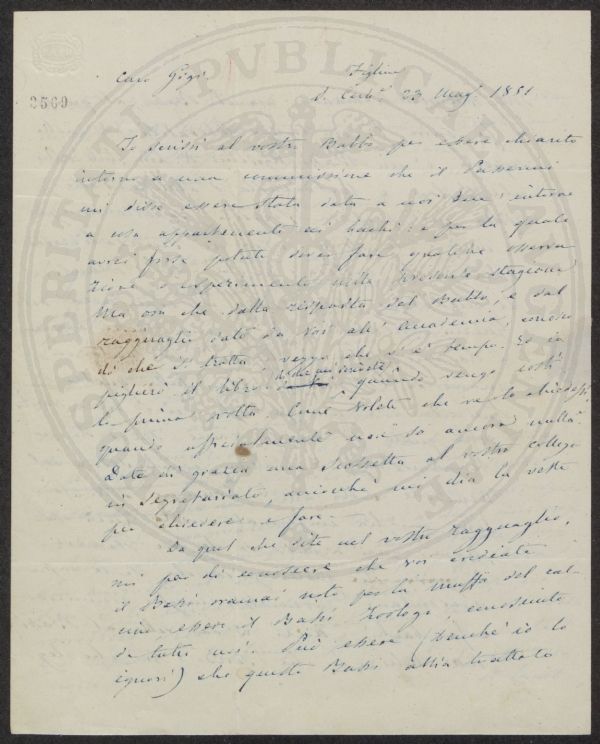 PROSPERITATI PVBLICAE AVGENDAE
2569
Caro Gigi
Figline
23 Mag. 1851
Io scrissi al vostro Babbo per essere chiarito
intorno a una commissione che il Passerini
mi disse essere stata data a noi due: intorno
a cosa appartenente ai bachi: e per la quale
avrei forse potuto dover fare qualche osserva
zione o esperimento nella presente stagione
Ma ora che dalla risposta del Babbo, e dal
ragguaglio dato da voi all' Accademia, conosco
di che si tratta, veggo che v'è tempo. Ed io
piglierò il libro di che mi scrivete quando vengo costì
la prima volta. Come volete che ve lo chiedessi
quando officialmente non so ancora nulla?
Date di grazia una scossetta al vostro collega
in segretariato, acciocchè mi dia la veste
per chiedere e fare.
Da quel che dite nel vostro ragguaglio,
mi par di conoscere che voi crediate
il Bassi oramai noto per la muffa del cal
cino essere il Bassi Zoologo conosciuto
da tutti noi. Può essere (benchè io lo
ignori) che questo Bassi abbia trattato